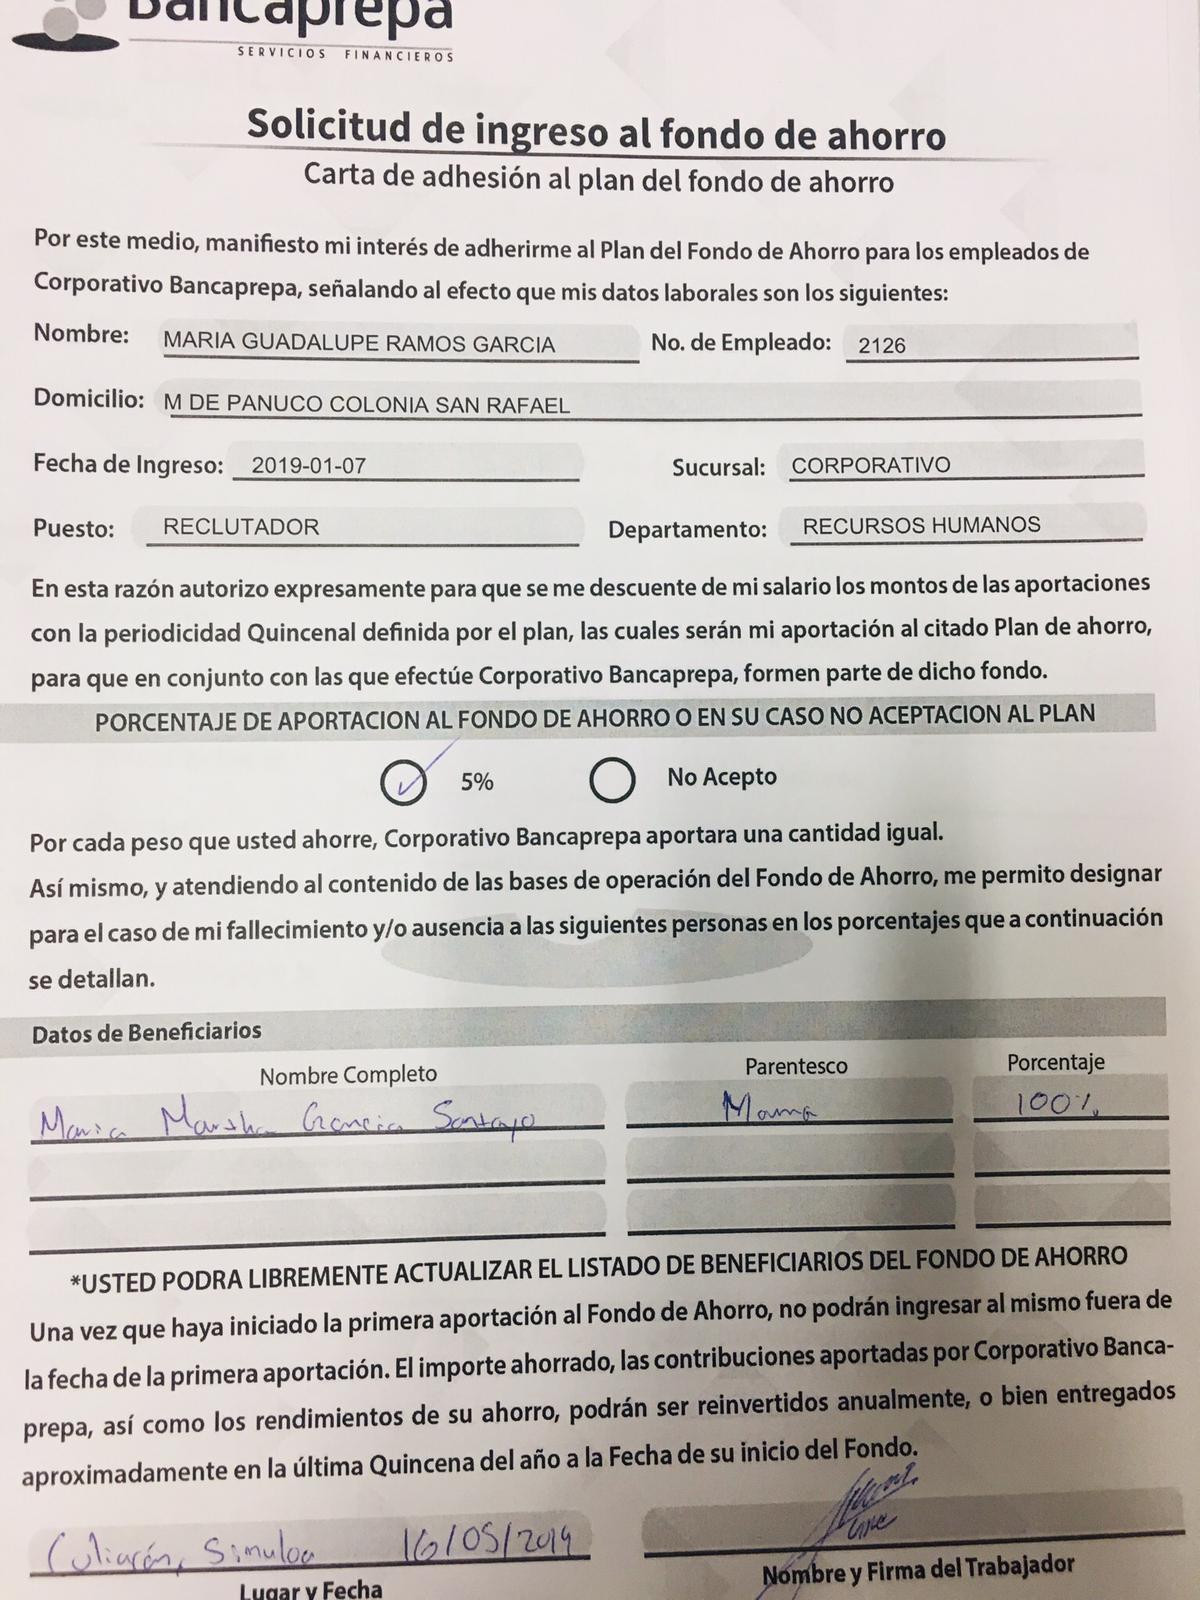 Bancaprepa
SERVICIOS FINANCIEROS
Solicitud de ingreso al fondo de ahorro
Carta de adhesión al plan del fondo de ahorro
Por este medio, manifiesto mi interés de adherirme al Plan del Fondo de Ahorro para los empleados de
Corporativo Bancaprepa, señalando al efecto que mis datos laborales son los siguientes:
Nombre: MARIA GUADALUPE RAMOS GARCIA No. de Empleado: 2126
Domicilio: M DE PANUCO COLONIA SAN RAFAEL
Fecha de Ingreso: 2019-01-07 Sucursal: CORPORATIVO
Puesto: RECLUTADOR Departamento: RECURSOS HUMANOS
En esta razón autorizo expresamente para que se me descuente de mi salario los montos de las aportaciones
con la periodicidad Quincenal definida por el plan, las cuales serán mi aportación al citado Plan de ahorro,
para que en conjunto con las que efectúe Corporativo Bancaprepa, formen parte de dicho fondo.
PORCENTAJE DE APORTACION AL FONDO DE AHORRO O EN SU CASO NO ACEPTACION AL PLAN
5% No Acepto
Por cada peso que usted ahorre, Corporativo Bancaprepa aportara una cantidad igual.
Así mismo, y atendiendo al contenido de las bases de operación del Fondo de Ahorro, me permito designar
para el caso de mi fallecimiento y/o ausencia a las siguientes personas en los porcentajes que a continuación
se detallan.
Datos de Beneficiarios
Nombre Completo Parentesco Porcentaje
Maria Garcia Mama 100%
*USTED PODRA LIBREMENTE ACTUALIZAR EL LISTADO DE BENEFICIARIOS DEL FONDO DE AHORRO
Una vez que haya iniciado la primera aportación al Fondo de Ahorro, no podrán ingresar al mismo fuera de
la fecha de la primera aportación. El importe ahorrado, las contribuciones aportadas por Corporativo Banca-
prepa, así como los rendimientos de su ahorro, podrán ser reinvertidos anualmente, o bien entregados
aproximadamente en la última Quincena del año a la Fecha de su inicio del Fondo.
Culiacán, Sinaloa 16/05/2019
Lugar y Fecha Nombre y Firma del Trabajador